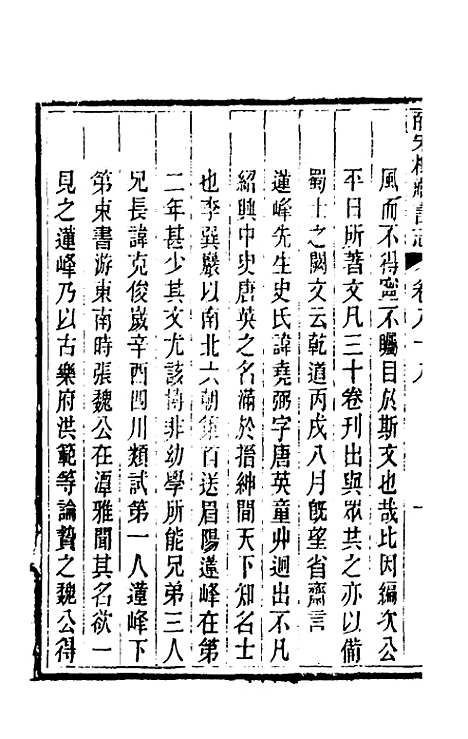 宋樓藏書志 卷八十八 一
風而不得寧不矚目於斯文也哉比因編次公
平日所著文凡三十卷刊出與眾共之亦以備
蜀士之闕文云乾道丙戌八月旣望省齋言
蓮峰先生史氏諱堯弼字唐英童丱迥出不凡
紹興中史唐英之名滿於搢紳間天下知名士
也李巽巖以南北六朝策首送眉陽蓮峰在第
二年甚少其文尤該博非幼學所能兄弟三人
兄長諱克俊歲辛酉四川類試第一人蓮峰下
第束書游東南時張魏公在潭雅聞其名欲一
見之蓮峰乃以古樂府洪範等論贄之魏公得